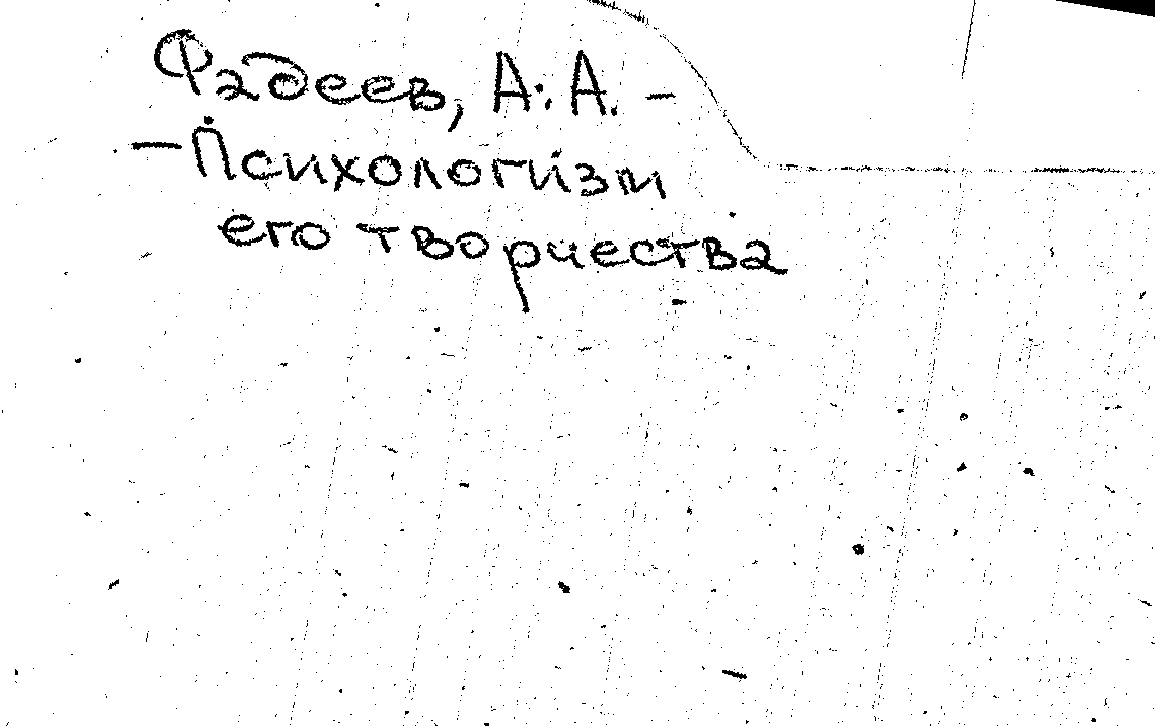 Фадеев, А. А. –
– Психологизм
его творчества